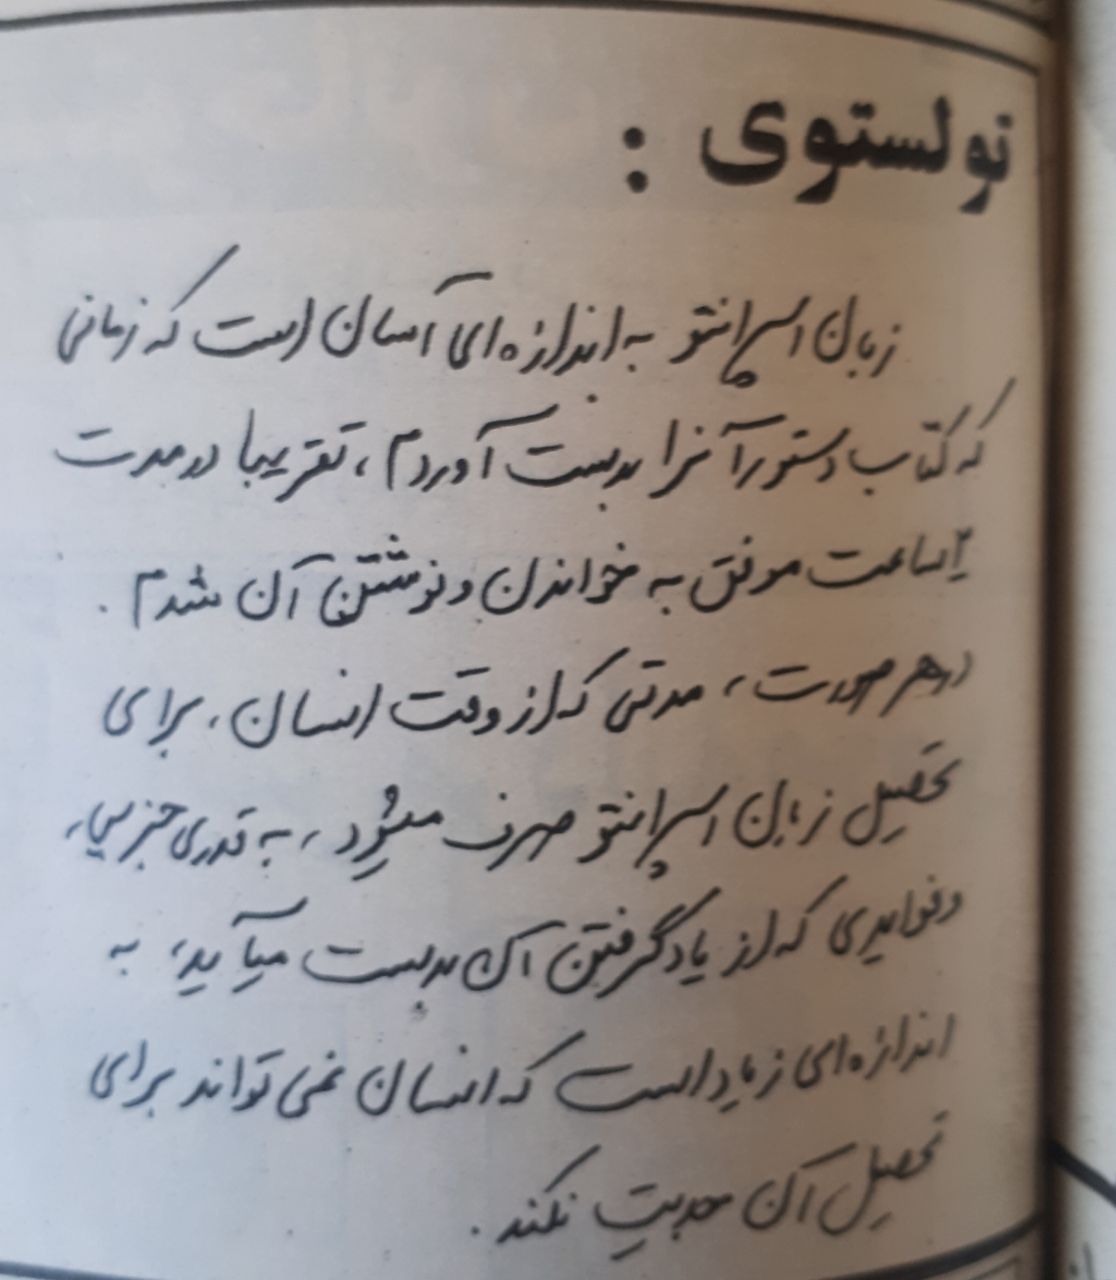 تولستوی :
زبان اسپرانتو به اندازه‌ای آسان است که زمانی
که کتاب دستور آنرا بدست آوردم ، تقریبا در مدت
۲ ساعت موفق به خواندن و نوشتن آن شدم .
در هر صورت ، مدتی که از وقت انسان ، برای
تحصیل زبان اسپرانتو صرف میشود ، به قدری جزیی ،
و فوایدی که از یادگرفتن آن بدست میآید ، به
اندازه‌ای زیاد است که انسان نمی تواند برای
تحصیل آن جدیت نکند .